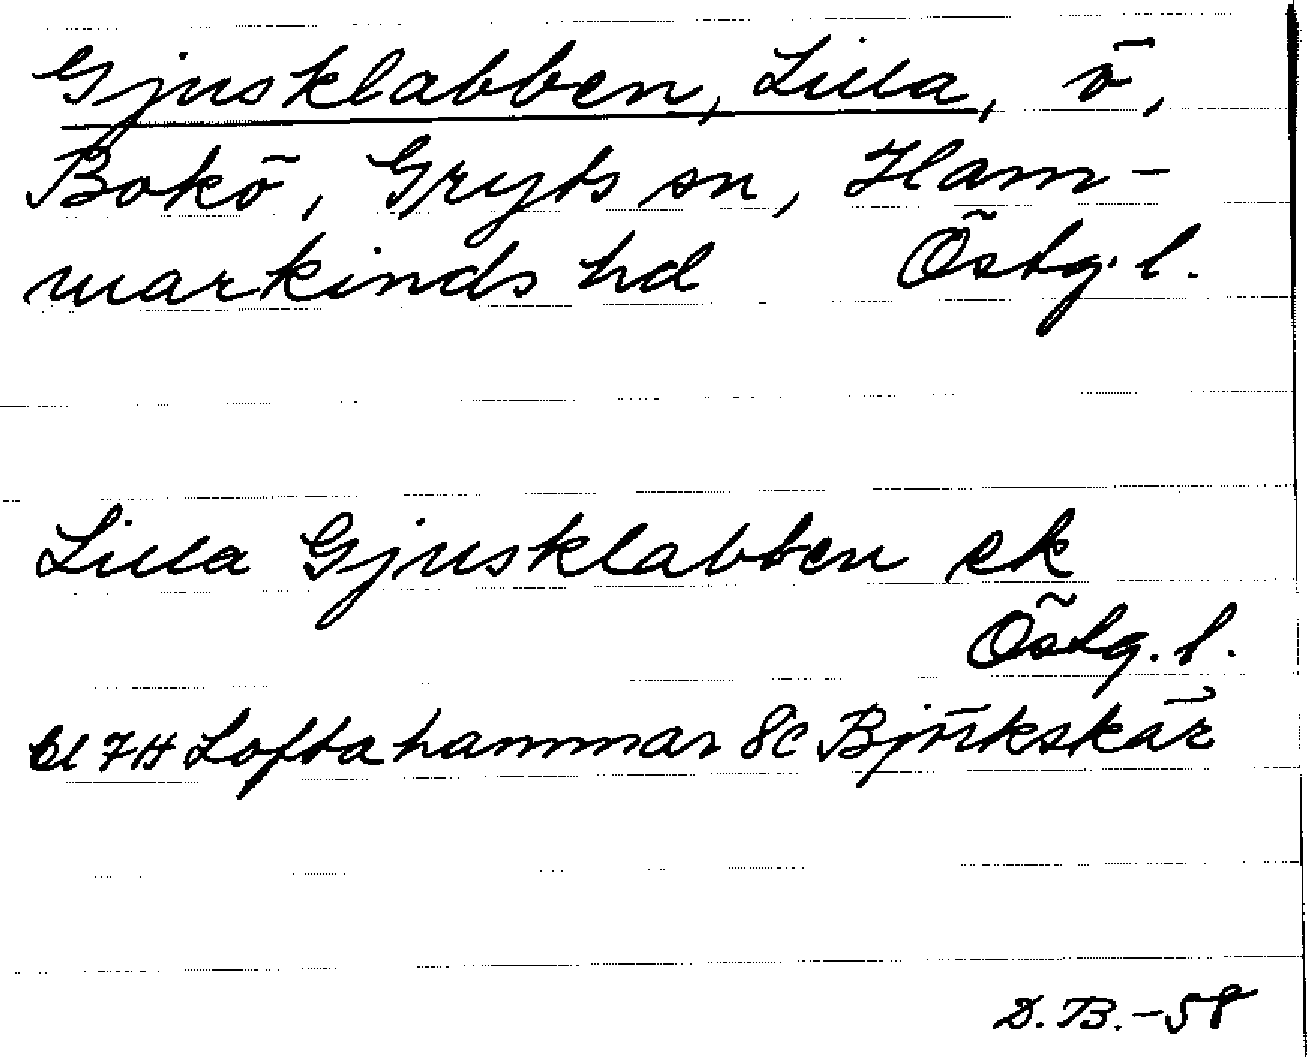 Gjusklabben, Lilla, ö,
Bokö, Gryts sn, Ham-
markinds hd Östg. l.
Lilla Gjusklabben ek
Östg. l.
Bl 7H Loftahammar 8c Björkskär
D. B. -58